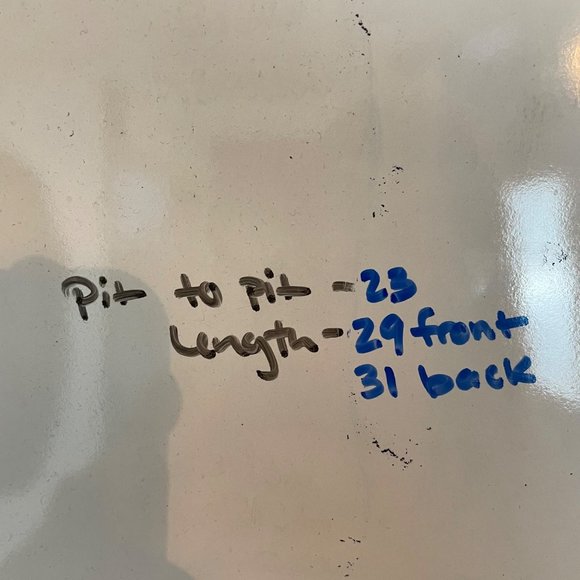 Pit to pit - 23
Length - 29 front
31 back